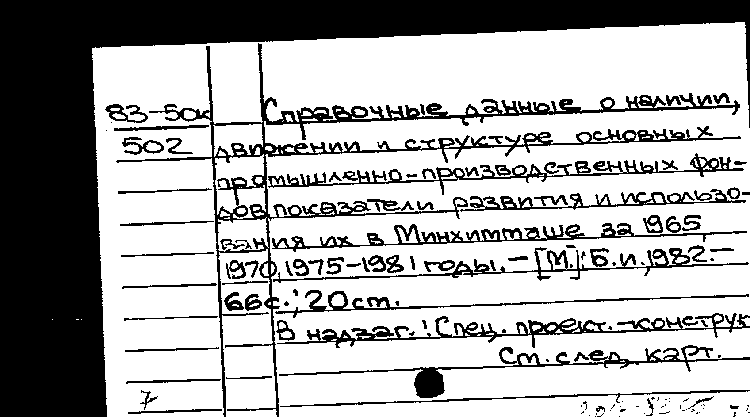 83-5ок Справочные данные о наличии,
502 движении и структуре основных
промышленно-производственных фон-
дов, показатели развития и использо-
вания их в Минхиммаше за 1965,
1970, 1975-1981 годы. - [М.]: Б.и., 1982. -
66с.; 20см.
В надзаг.: Спец. проект.-конструк
См. след. карт.
7